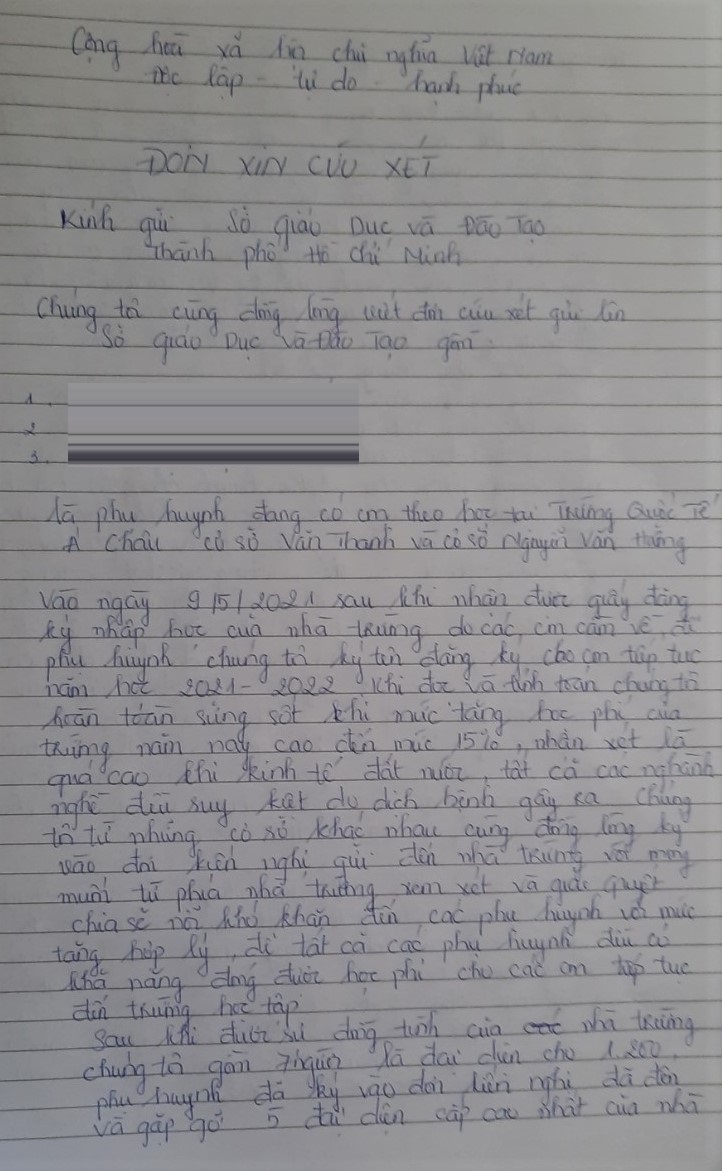 Cộng hoà xã hội chủ nghĩa Việt Nam
Độc lập - Tự do - hạnh phúc
ĐƠN XIN CỨU XÉT
Kính gửi Sở giáo Dục và Đào Tạo
Thành phố Hồ Chí Minh
Chúng tôi cùng đồng lòng viết đơn cứu xét gửi lên
Sở giáo Dục Và Đào Tạo gồm:
1.
2
3.
là phụ huynh đang có em theo học tại Trường Quốc Tế
Á Châu cơ sở Văn Thánh và cơ sở Nguyễn Văn Hưởng
Vào ngày 9/5/2021 sau khi nhận được giấy đăng
ký nhập học của nhà trường do các em cầm về, để
phụ huynh chúng tôi ký tên đăng ký cho em tiếp tục
năm học 2021-2022 khi đọc và tính toán chúng tôi
hoàn toàn sửng sốt khi mức tăng học phí của
trường năm nay cao đến mức 15%, nhận xét là
quá cao khi kinh tế đất nước, tất cả các nghành
nghề đều suy kiệt do dịch bệnh gây ra chúng
tôi từ những cơ sở khác nhau cùng đồng lòng ký
vào đơn kiến nghị gửi đến nhà trường với mong
muốn từ phía nhà trường xem xét và giải quyết
chia sẽ nỗi khó khăn đến các phụ huynh với mức
tăng hợp lý, để tất cả các phụ huynh đều có
khả năng đóng được học phí cho các em tiếp tục
đến trường học tập
Sau khi được sự đồng tình của nhà trường
chúng tôi gồm 7 người là đại diện cho 1.200
phụ huynh đã ký vào đơn kiến nghị đã đến
và gặp gỡ 5 đại diện cấp cao nhất của nhà